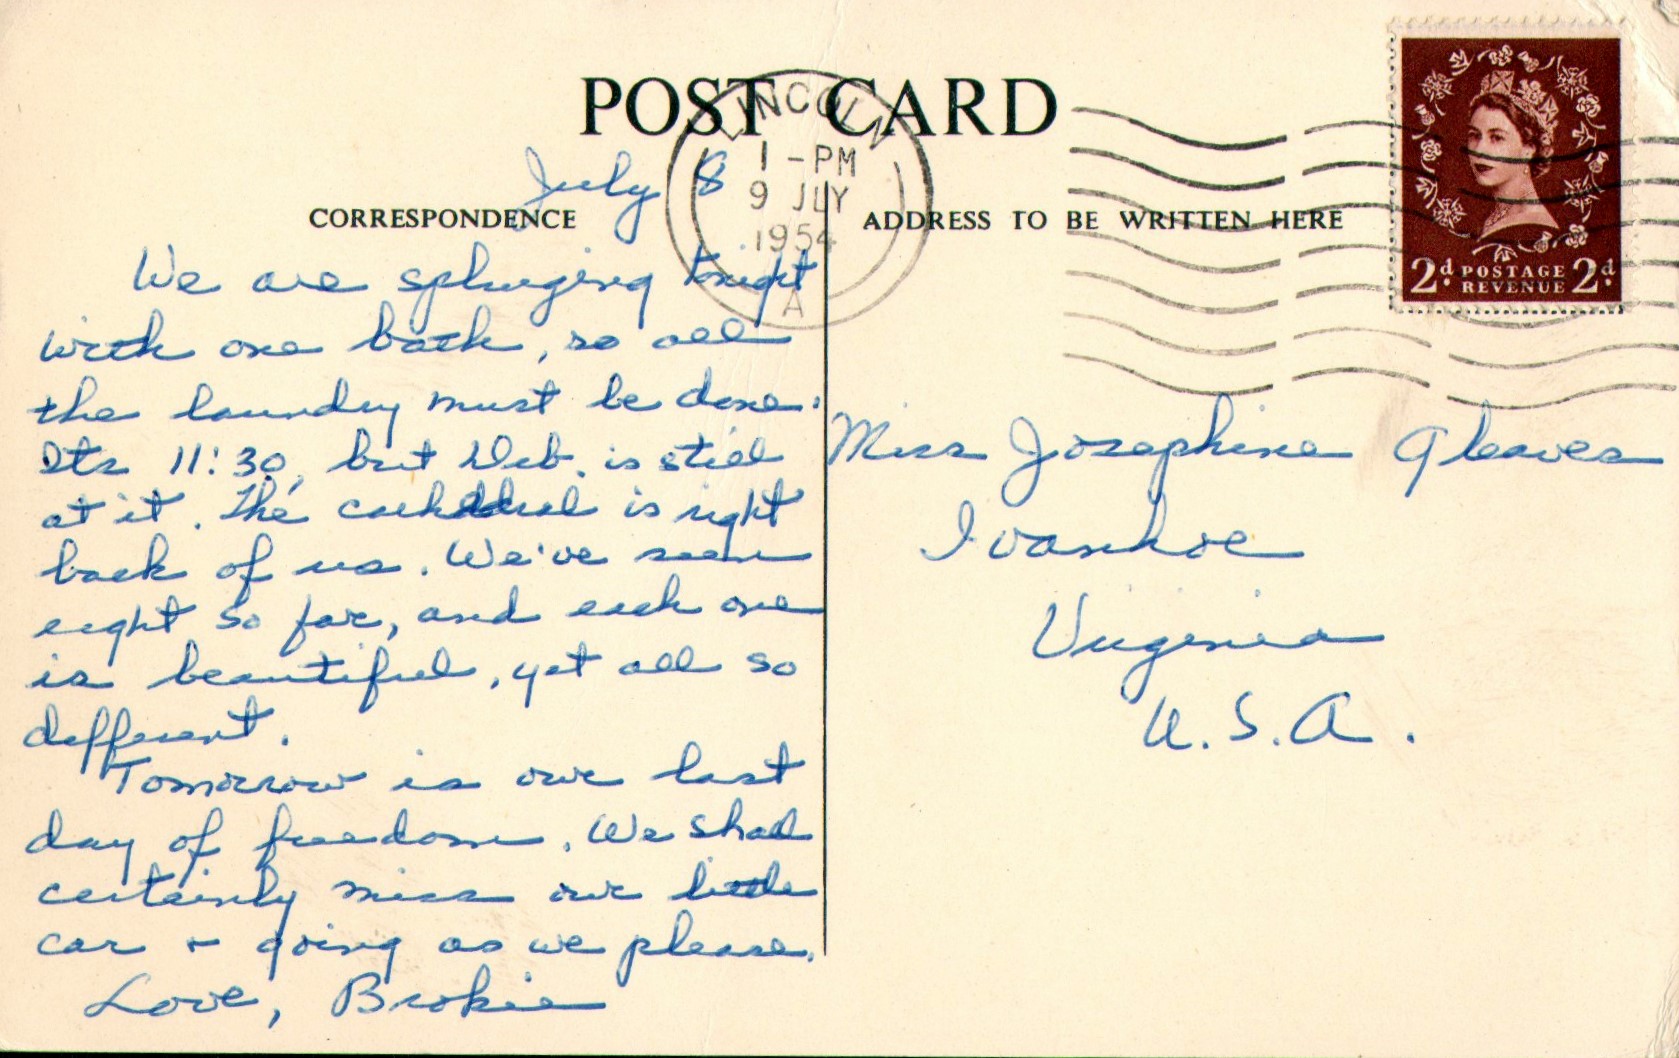 POST CARD
LINCOLN
1 - PM
9 JLY
1954
A
July 8
CORRESPONDENCE
We are splurging tonight
with one bath, so all
the laundry must be done.
Its 11:30, but Deb. is still
at it. The cathedral is right
back of us. We've seen
eight so far, and each one
is beautiful, yet all so
different.
Tomorrow is our last
day of freedom. We shall
certainly miss our little
car + going as we please.
Love, Brokie
ADDRESS TO BE WRITTEN HERE
2d. POSTAGE REVENUE 2d.
Miss Josephine Gleaves
Ivanhoe
Virginia
U.S.A.